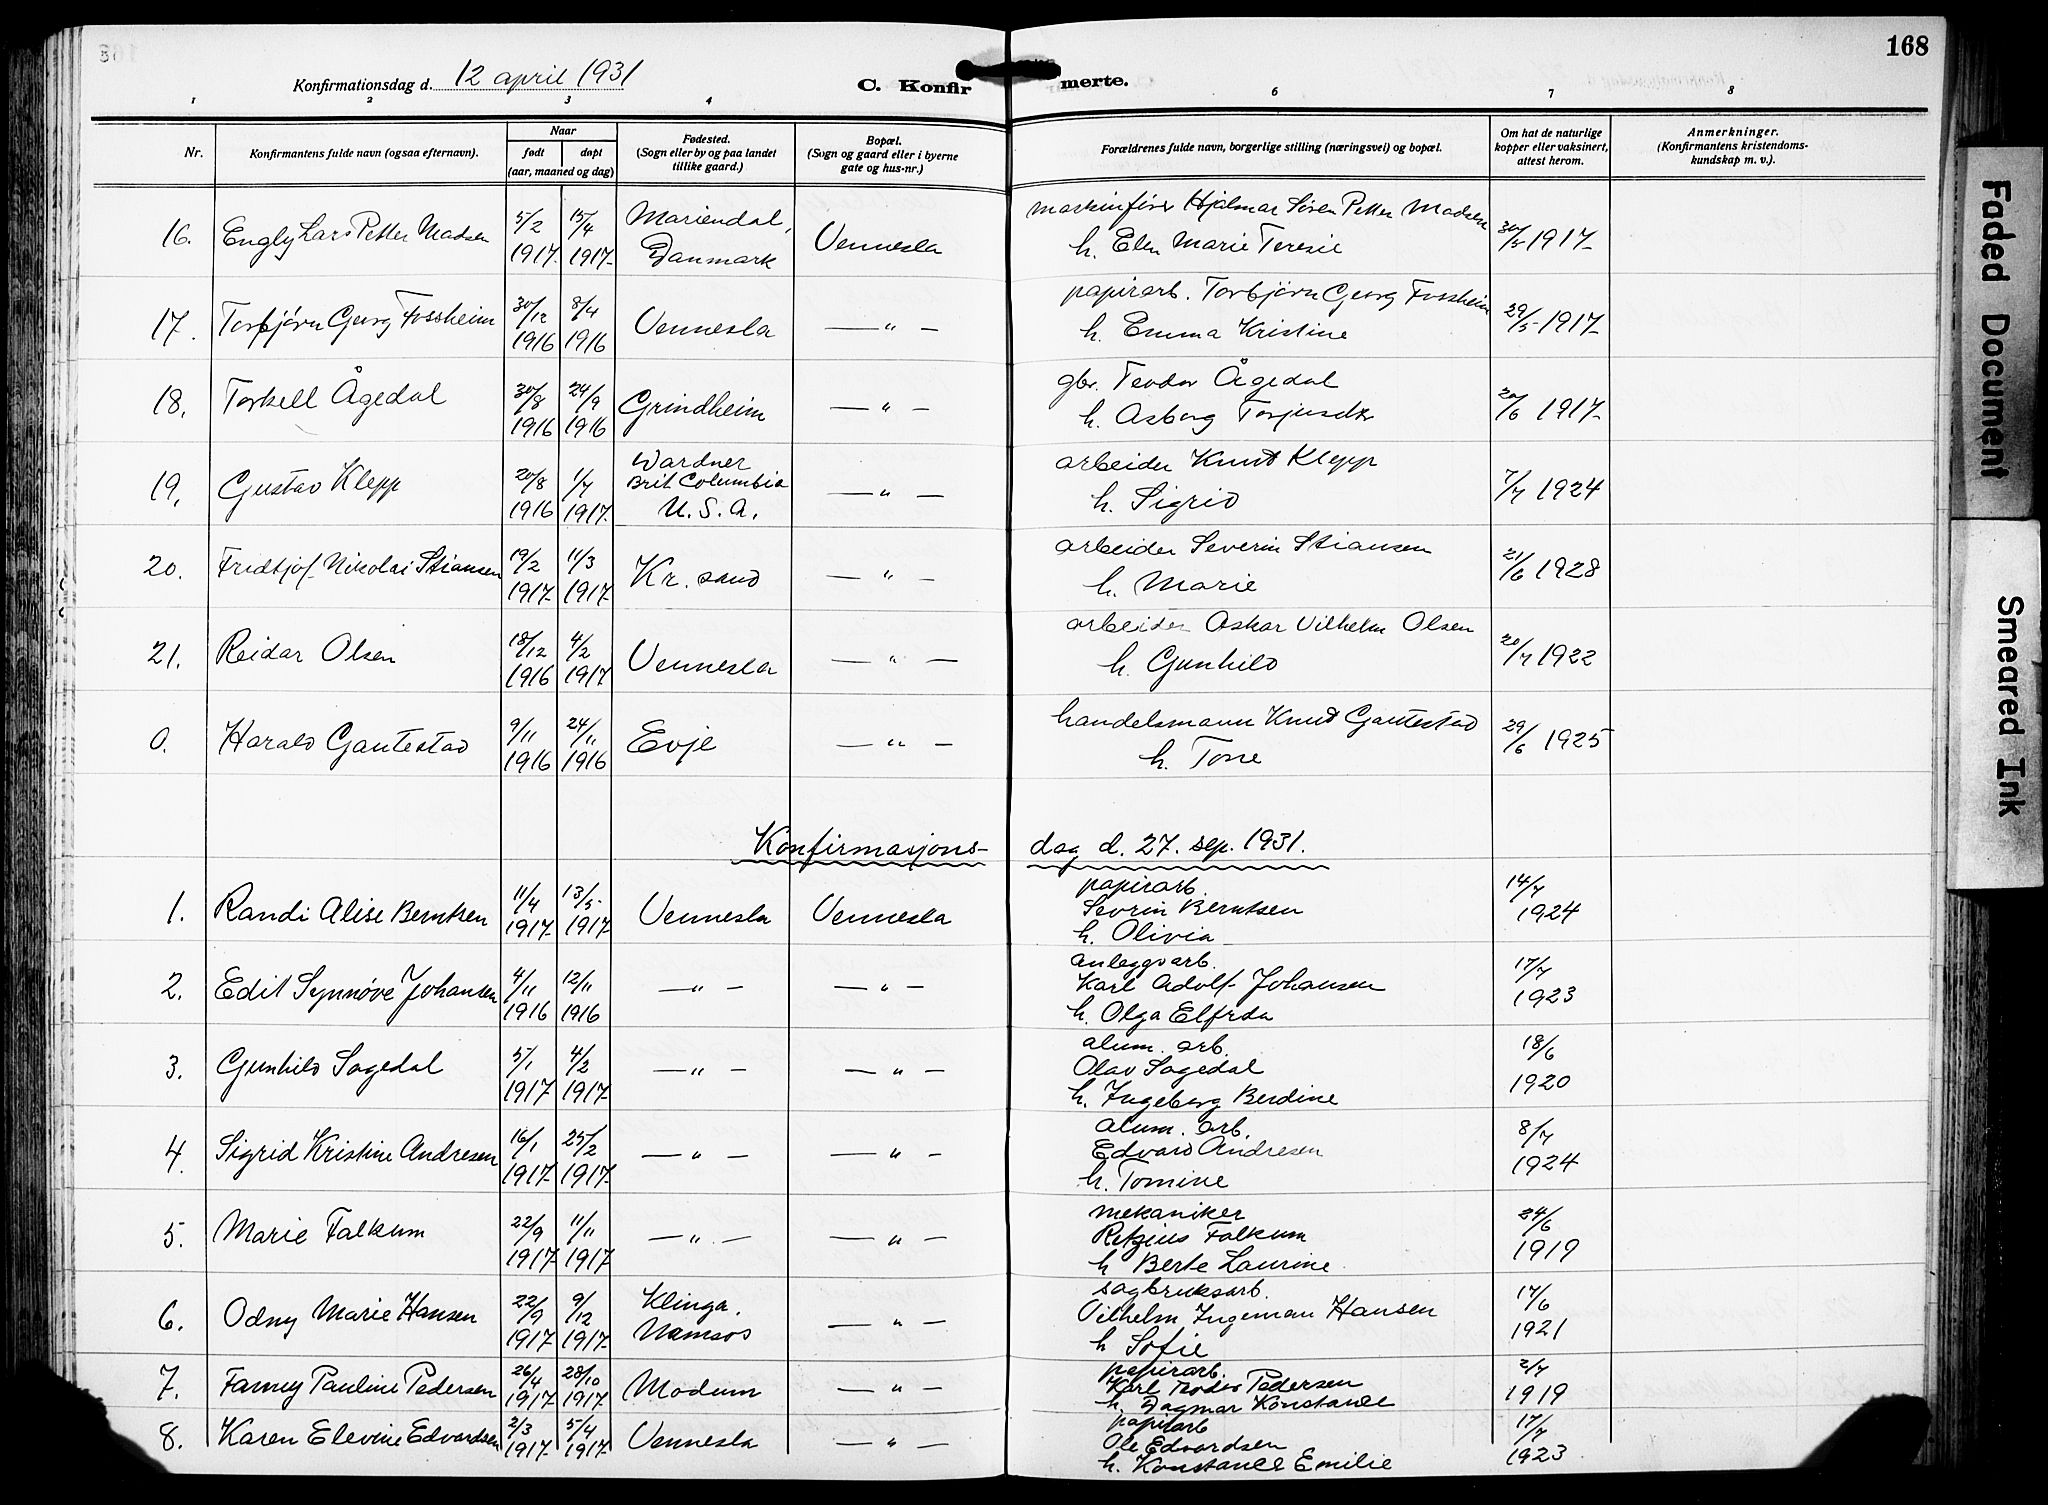 168
Konfirmationsdag d. 12 april 1931 C. Konfirmerte.
1 2 3 4 6 7 8
Nr. Konfirmantens fulde navn (ogsaa efternavn). Naar født døpt (aar, maaned og dag) Fødested. (Sogn eller by og paa landet tillike gaard.) Bopæl. (Sogn og gaard eller i byerne gate og hus-nr.) Forældrenes fulde navn, borgerlige stilling (næringsvei) og bopæl. Om hat de naturlige kopper eller vaksinert, attest herom. Anmerkninger. (Konfirmantens kristendomskundskap m. v.).
16. Engly Lars Petter Madsen 5/2 1917 15/4 1917 Mariendal, Danmark Vennesla maskinfører Hjalmar Søren Petter Madsen h. Elen Marie Teresie 30/5 1917
17. Torbjørn Georg Fossheim 30/12 1916 8/4 1916 Vennesla — " — papirarb. Torbjørn Georg Fossheim h. Emma Kristine 29/5 1917
18. Torkell Ågedal 30/8 1916 24/9 1916 Grindheim — " — gbr. Teodor Ågedal h. Asborg Torjusdtr 20/6 1917
19. Gustav Klepp 20/8 1916 1/7 1917 Wardner Brit Columbia U.S.A. — " — arbeider Knut Klepp h. Sigrid 7/7 1924
20. Fridtjof Nikolai Stiansen 19/2 1917 11/3 1917 Kr. sand — " — arbeider Severin Stiansen h. Marie 21/6 1928
21. Reidar Olsen 18/12 1916 4/2 1917 Vennesla — " — arbeider Oskar Vilhelm Olsen h. Gunhild 20/7 1922
0. Harald Gautestad 9/11 1916 24/11 1916 Evje — " — handelsmann Knut Gautestad h. Tone 29/6 1925
Konfirmasjonsdag d. 27. sep. 1931.
1. Randi Alise Berntsen 11/4 1917 13/5 1917 Vennesla Vennesla papirarb. Sevrin Berntsen h. Olivia 14/7 1924
2. Edit Synnøve Johansen 4/11 1916 12/11 1916 — " — — " — anleggsarb. Karl Adolf Johansen h. Olga Elfrda 17/7 1923
3. Gunhild Sagedal 5/1 1917 4/2 1917 — " — — " — alum. arb. Olav Sagedal h. Ingeborg Berdine 18/6 1920
4. Sigrid Kristine Andresen 16/1 1917 25/2 1917 — " — — " — alum. arb. Edvard Andresen h. Tomine 8/7 1924
5. Marie Falkum 22/9 1917 11/11 1917 — " — — " — mekaniker Retzius Falkum h Berte Laurine 24/6 1919
6. Odny Marie Hansen 22/9 1917 9/12 1917 Klinga, Namsos — " — sagbruksarb. Vilhelm Ingeman Hansen h Sofie 17/6 1921
7. Fanny Pauline Pedersen 26/4 1917 28/10 1917 Modum — " — papirarb. Karl Teodor Pedersen h. Dagmar Konstanse 2/7 1919
8. Karen Elevine Edvardsen 2/3 1917 5/4 1917 Vennesla — " — papirarb Ole Edvardsen h. Konstanse Emilie 17/7 1923
Faded Document
Smeared Ink